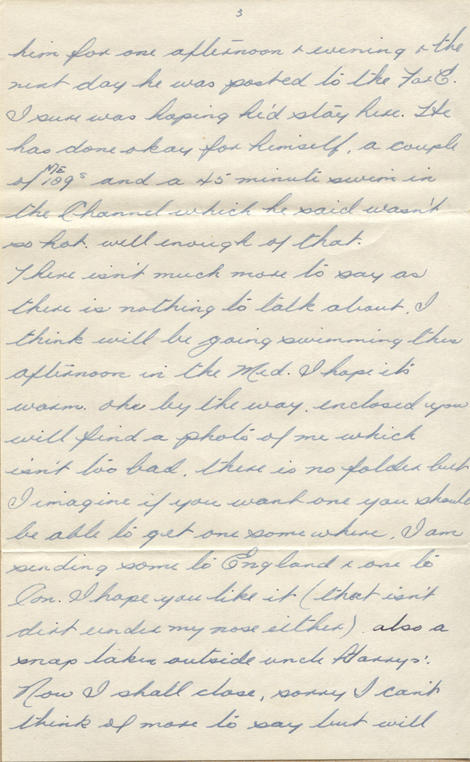 3
him for one afternoon & evening & the
next day he was posted to the Far E.
I sure was hoping he'd stay here. He
has done okay for himself, a couple
of ME 109s and a 45 minute swim in
the Channel which he said wasn't
so hot. well enough of that.
There isn't much more to say as
there is nothing to talk about. I
think will be going swimming this
afternoon in the Med. I hope its
warm. oh by the way, enclosed you
will find a photo of me which
isn't too bad, there is no folder but
I imagine if you want one you should
be able to get one somewhere. I am
sending some to England & one to
Con. I hope you like it (that isn't
dirt under my nose either) also a
snap taken outside uncle Harrys'.
Now I shall close, sorry I can't
think of more to say but will